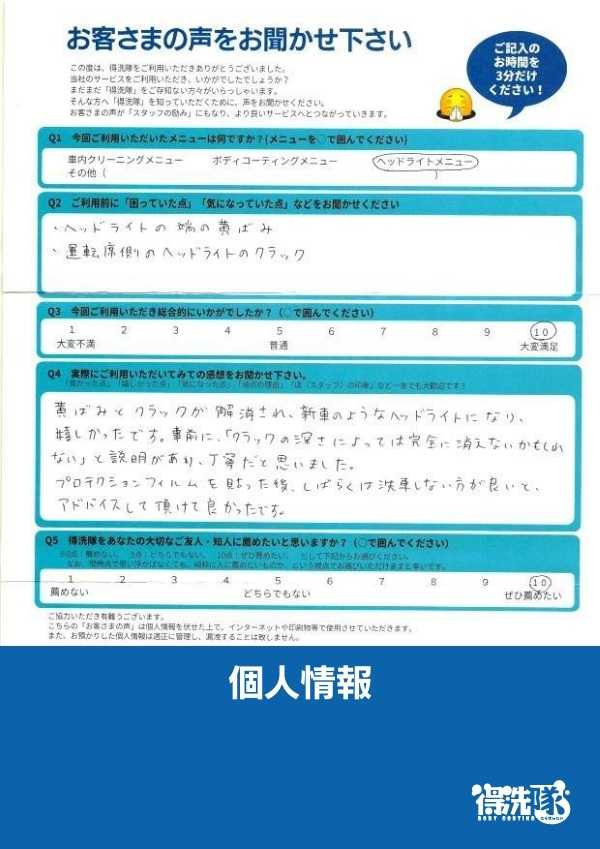 お客さまの声をお聞かせ下さい
ご記入の
お時間を
3分だけ
ください！
この度は、得洗隊をご利用いただきありがとうございました。
当社のサービスをご利用いただき、いかがでしたでしょうか？
まだまだ「得洗隊」をご存知ない方々がいらっしゃいます。
そんな方へ「得洗隊」を知っていただくために、声をお聞かせください。
お客さまの声が「スタッフの励み」にもなり、より良いサービスへとつながっていきます。
Q1 今回ご利用いただいたメニューは何ですか？(メニューを○で囲んでください)
車内クリーニングメニュー ボディコーティングメニュー ヘッドライトメニュー
その他（ ）
Q2 ご利用前に「困っていた点」「気になっていた点」などをお聞かせください
・ヘッドライトの端の黄ばみ
・運転席側のヘッドライトのクラック
Q3 今回ご利用いただき総合的にいかがでしたか？（○で囲んでください）
1 2 3 4 5 6 7 8 9 10
大変不満 普通 大変満足
Q4 実際にご利用いただいてみての感想をお聞かせ下さい。
「良かった点」「嬉しかった点」「気になった点」「採点の理由」「店（スタッフ）の印象」など一言でも大歓迎です！
黄ばみとクラックが解消され、新車のようなヘッドライトになり、
嬉しかったです。事前に、「クラックの深さによっては完全に消えないかもしれ
ない」と説明があり、丁寧だと思いました。
プロテクションフィルムを貼った後、しばらくは洗車しない方が良いと、
アドバイスして頂けて良かったです。
Q5 得洗隊をあなたの大切なご友人・知人に薦めたいと思いますか？（○で囲んでください）
1 2 3 4 5 6 7 8 9 10
薦めない どちらでもない ぜひ薦めたい
ご協力いただき有難うございます。
こちらの「お客さまの声」は個人情報を伏せた上で、インターネットや印刷物等で使用させていただきます。
また、お預かりした個人情報は適正に管理し、漏洩することは致しません。
個人情報
得洗隊
BODY COATING